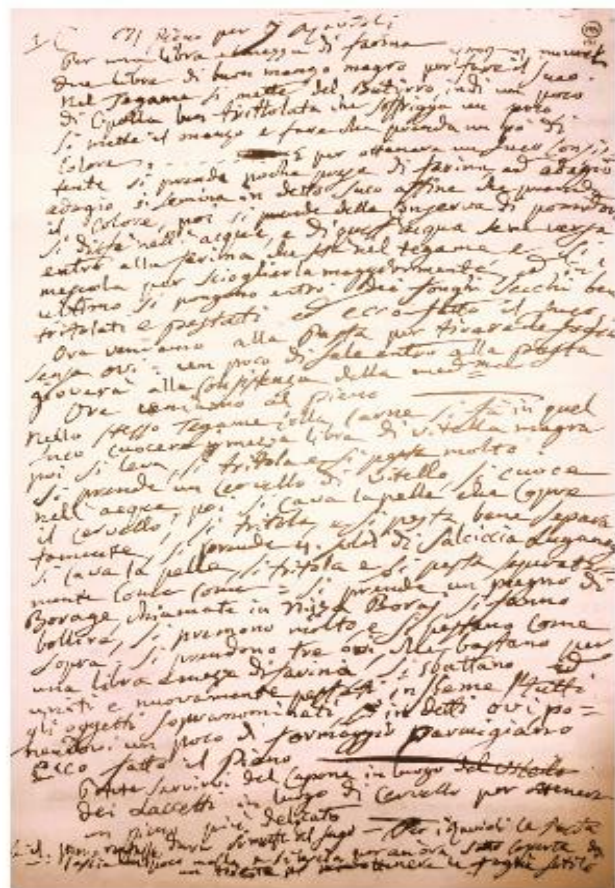 1° C Il pieno per J Ravioli
Per una libra e mezza di farina
due libre di buon manzo magro per fare il suco.
Nel Tegame si mette del Butirro, indi un poco
di Cipolla ben trittolata che soffrigga un poco
si mette il manzo e fare che prenda un pò di
colore, E per ottenere un suco consis
tente si prende poche prese di farina ed adagio
adagio si semina in detto suco affine che prenda
il colore, poi si prende della conserva di pomidoro
si disfà nell'acqua, e di quest'acqua se ne versa
entro alla farina che sta nel tegame e si
mescola per scioglierla maggiormente, ed in
ultimo si pongono entro Dei fonghi secchi ben
tritolati e pestati ed ecco fatto il suco.
Ora veniamo alla Pasta per tirare le sfoglie
senza ovi: un poco di sale entro alla pasta
gioverà alla consistenza della med=ma
Ora veniamo al Pieno
Nello stesso Tegame colla carne si fa in quel
suco cuocere mezza libra di vitella magra
poi si leva, si tritola e si pesta molto:
Si prende un cervello di Vitello, si cuoce
nell'acqua, poi si cava la pelle che copre
il cervello, si tritola, e si pesta bene separa
tamente, si prende 4 soldi di Salciccia Luganega
si cava la pelle, si tritola e si pesta separata
mente come = si prende un pugno di
Borage, chiamate in Nizza Boraj si fanno
bollire, si premono molto e si pestano come
sopra, si prendono tre ovi che bastano per
una libra e mezza di farina, si sbattano ed
uniti e nuovamente pestati insieme tutti
gli oggetti sopranominati in detti ovi po=
nendovi un poco di formaggio parmigiano
Ecco fatto il Pieno
Potete servirvi del Capone in luogo del vitello
dei Laccetti in luogo di Cervello per ottenere
un pieno più delicato
si mette del sugo = Per i raviolì la pasta
un poco molla e si lascia per un ora sotto coperta da
un per ottenere le foglie sottile